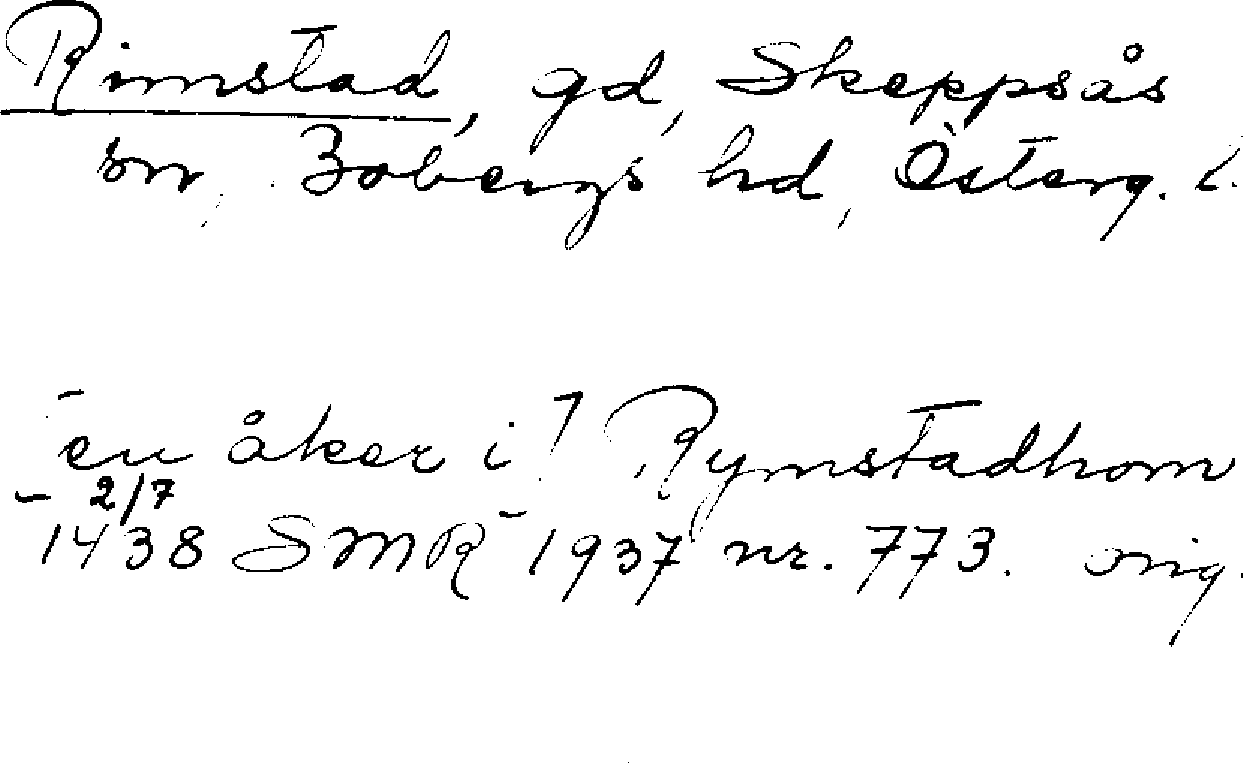 Rimstad, gd, Skeppsås
sn, Bobergs hd, Österg. l.
[en åker i] Rymstadhom
- 2/7
1438 SMR 1937 nr. 773. orig.